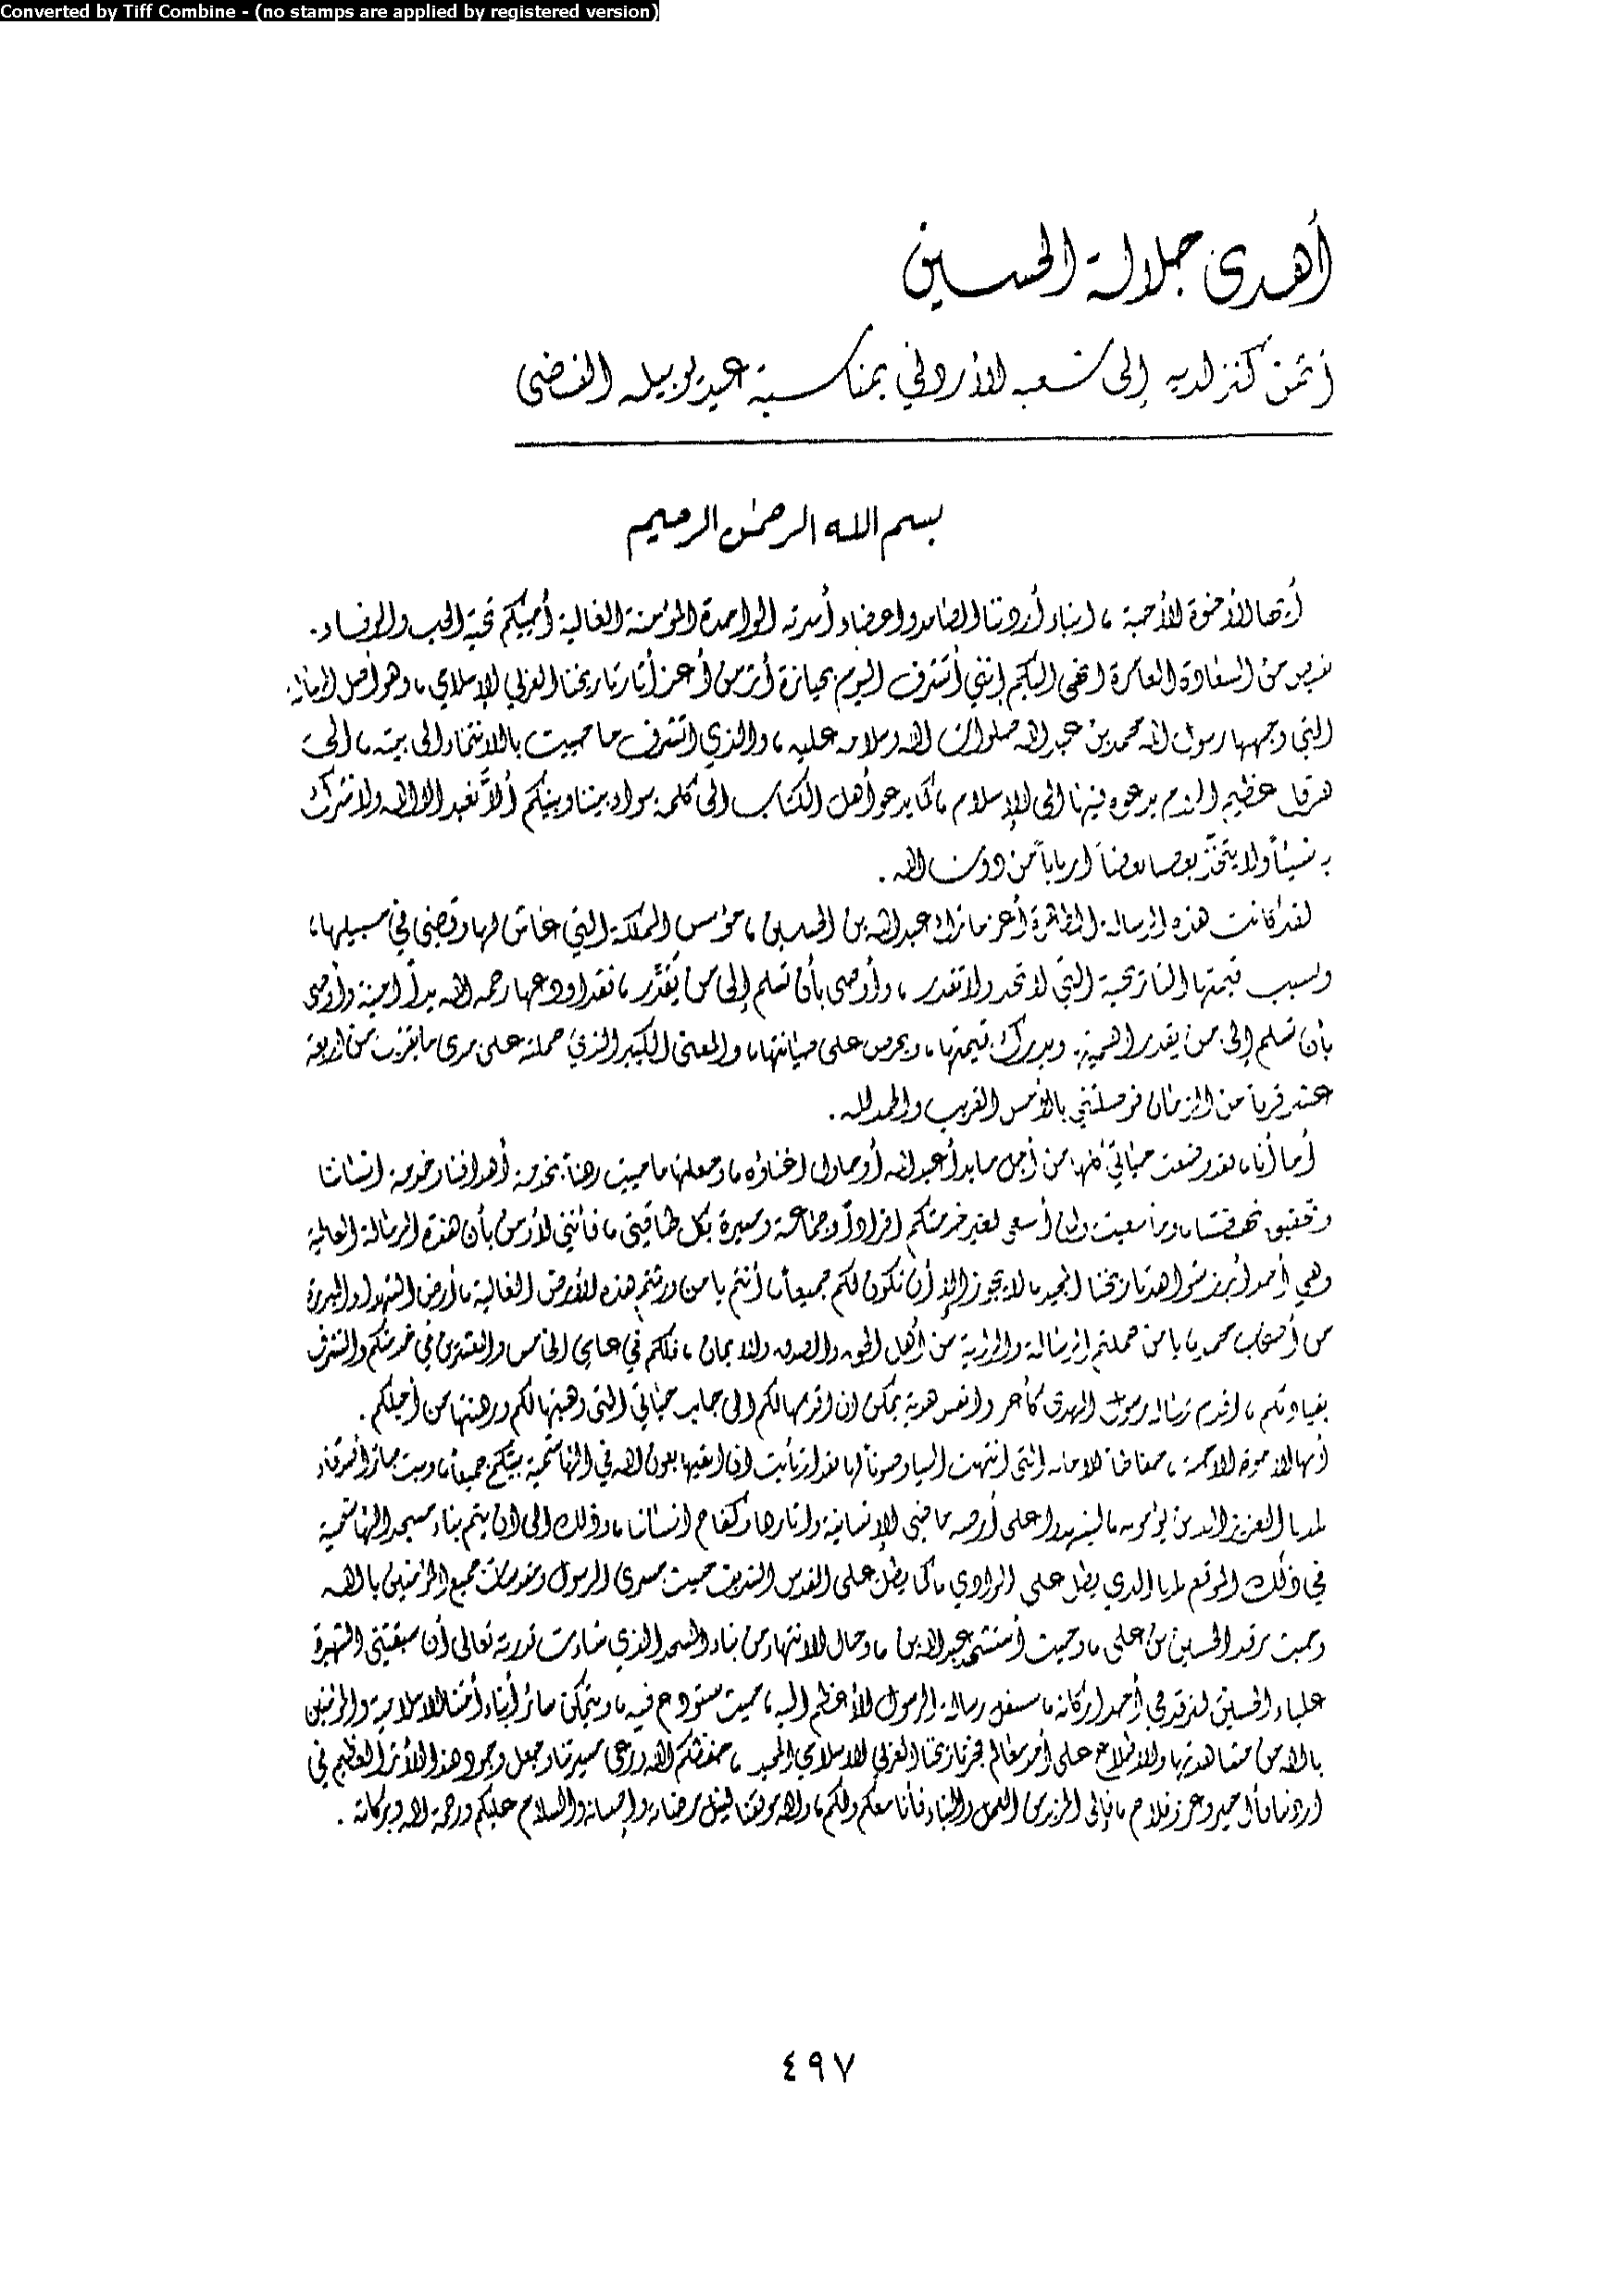 Converted by Tiff Combine - (no stamps are applied by registered version)
أهدى جلالة الحسين
أثمن كنز لديه إلى شعبه الأردني بمناسبة عيد يوبيله الفضي
بسم الله الرحمن الرحيم
أيها الأخوة الأحبة ، ابناء أردننا الصامد واعضاء أسرته الواحدة المؤمنة الغالية أحييكم تحية الحب والوفاء .
من السعادة الغامرة انهي اليكم إنني أتشرف اليوم بحيازة أثر من أعز آثار تاريخنا العربي الإسلامي ، وهو أصل الرسالة
التي وجهها رسول الله محمد بن عبد الله صلوات الله وسلامه عليه ، والذي اتشرف ما حييت بالانتماء الى بيته ، الى
هرقل عظيم الروم يدعوه فيها الى الإسلام ، كما يدعو أهل الكتاب الى كلمة سواء بيننا وبينكم ألاَّ نعبد الا الله ولا نشرك
به شيئاً ولا يتخذ بعضنا بعضاً ارباباً من دون الله .
لقد كانت هذه الرسالة المطهرة أعز ما ترك عبد الله بن الحسين ، مؤسس المملكة التي عاش لها وقضى في سبيلها ،
وبسبب قيمتها التاريخية التي لا تحد ولا تقدر ، وأوصى بأن تسلم إلى من يُقدَّر ، فقد اودعها رحمه الله يداً امينة وأوصى
بأن تسلم إلى من يقدر اهميتها ويدرك قيمتها ، ويحرص على صيانتها ، والمعنى الكبير الذي حملته على مدى ما يقرب من اربعة
عشر قرناً من الزمان فوصلتني بالأمس القريب والحمد لله .
أما أنا ، فقد وضعت حياتي كلها من أجل ما بدأ عبد الله أو حاول اغناؤه ، وجعلتها ما حييت رهناً بخدمة أهدافنا وخدمة انساننا
وتحقيق نهضتنا ، وما سعيت ولن أسعى لغير خدمتكم افراداً وجماعة ومسيرة بكل طاقتي ، فأنني لأؤمن بأن هذه الرسالة الغالية
وهي أحد أبرز شواهد تاريخنا المجيد ، لا يجوز إلا أن تكون لكم جميعاً ، أنتم يا من ورثتم هذه الأرض الغالية ، أرض الشهداء والبررة
من أصحاب محمد ، يا من حملتم الرسالة والراية من أهل الحق والصدق والايمان ، فلكم في عامي الخامس والعشرين في خدمتكم والتشرف
بقيادتكم ، اقدم رسالة رسول الهدى كأعز وانفس هدية يمكن ان اقدمها لكم الى جانب حياتي التي وهبتها لكم ورهنتها من أجلكم .
أيها الاخوة الاكرمة ، حفاظاً للامانة التي انتهت الينا وصوناً لها فقد ارتأيت ان ابقيها بعون الله في الهاشمية بيتكم جميعاً ، وبيت سائر أشرقاء
بلدنا العزيز الذين يؤمونه ، ليشهدوا على أرضه ماضي الإنسانية وآثارها وكفاح انساننا ، وذلك الى ان يتم بناء مسجد الهاشمية
في ذلك الموقع لهذا الذي يطل على الوادي ، كما يطل على القدس الشريف حيث مسرى الرسول ومقدسات جميع المؤمنين بالله
وحيث يرقد الحسين بن علي ، وحيث أستشهد عبد الله ابن ، وحال الانتهاء من بناء المسجد الذي شاءت قدرته تعالى أن سبقتني الشهيرة
علياء الحسين لترقد في أحد اركانه ، ستنقل رسالة الرسول الأعظم اليه ، حيث ستودع فيه ، ويتمكن سائر أبناء أمتنا الاسلامية والمؤمنين
بالله من مشاهدتها والاطلاع على أحد معالم فجر تاريخنا العربي الاسلامي المجيد ، حفظكم الله ورعى مسيرتنا وجعل وجود هذا الأثر العظيم في
اردننا فأل خير وعز وفلاح ، فإلى المزيد من العمل والبناء فأنا معكم ولكم ، والله يوفقنا لنيل مرضاته وإحسانه والسلام عليكم ورحمة الله وبركاته .
٤٩٧